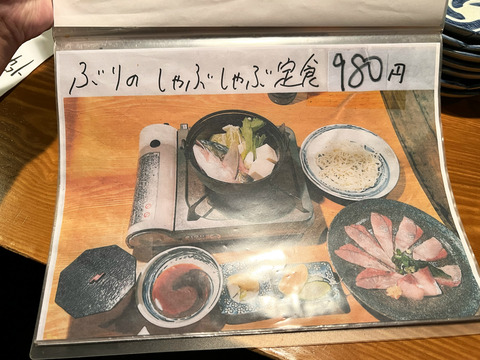 ぶりの しゃぶしゃぶ定食 980円